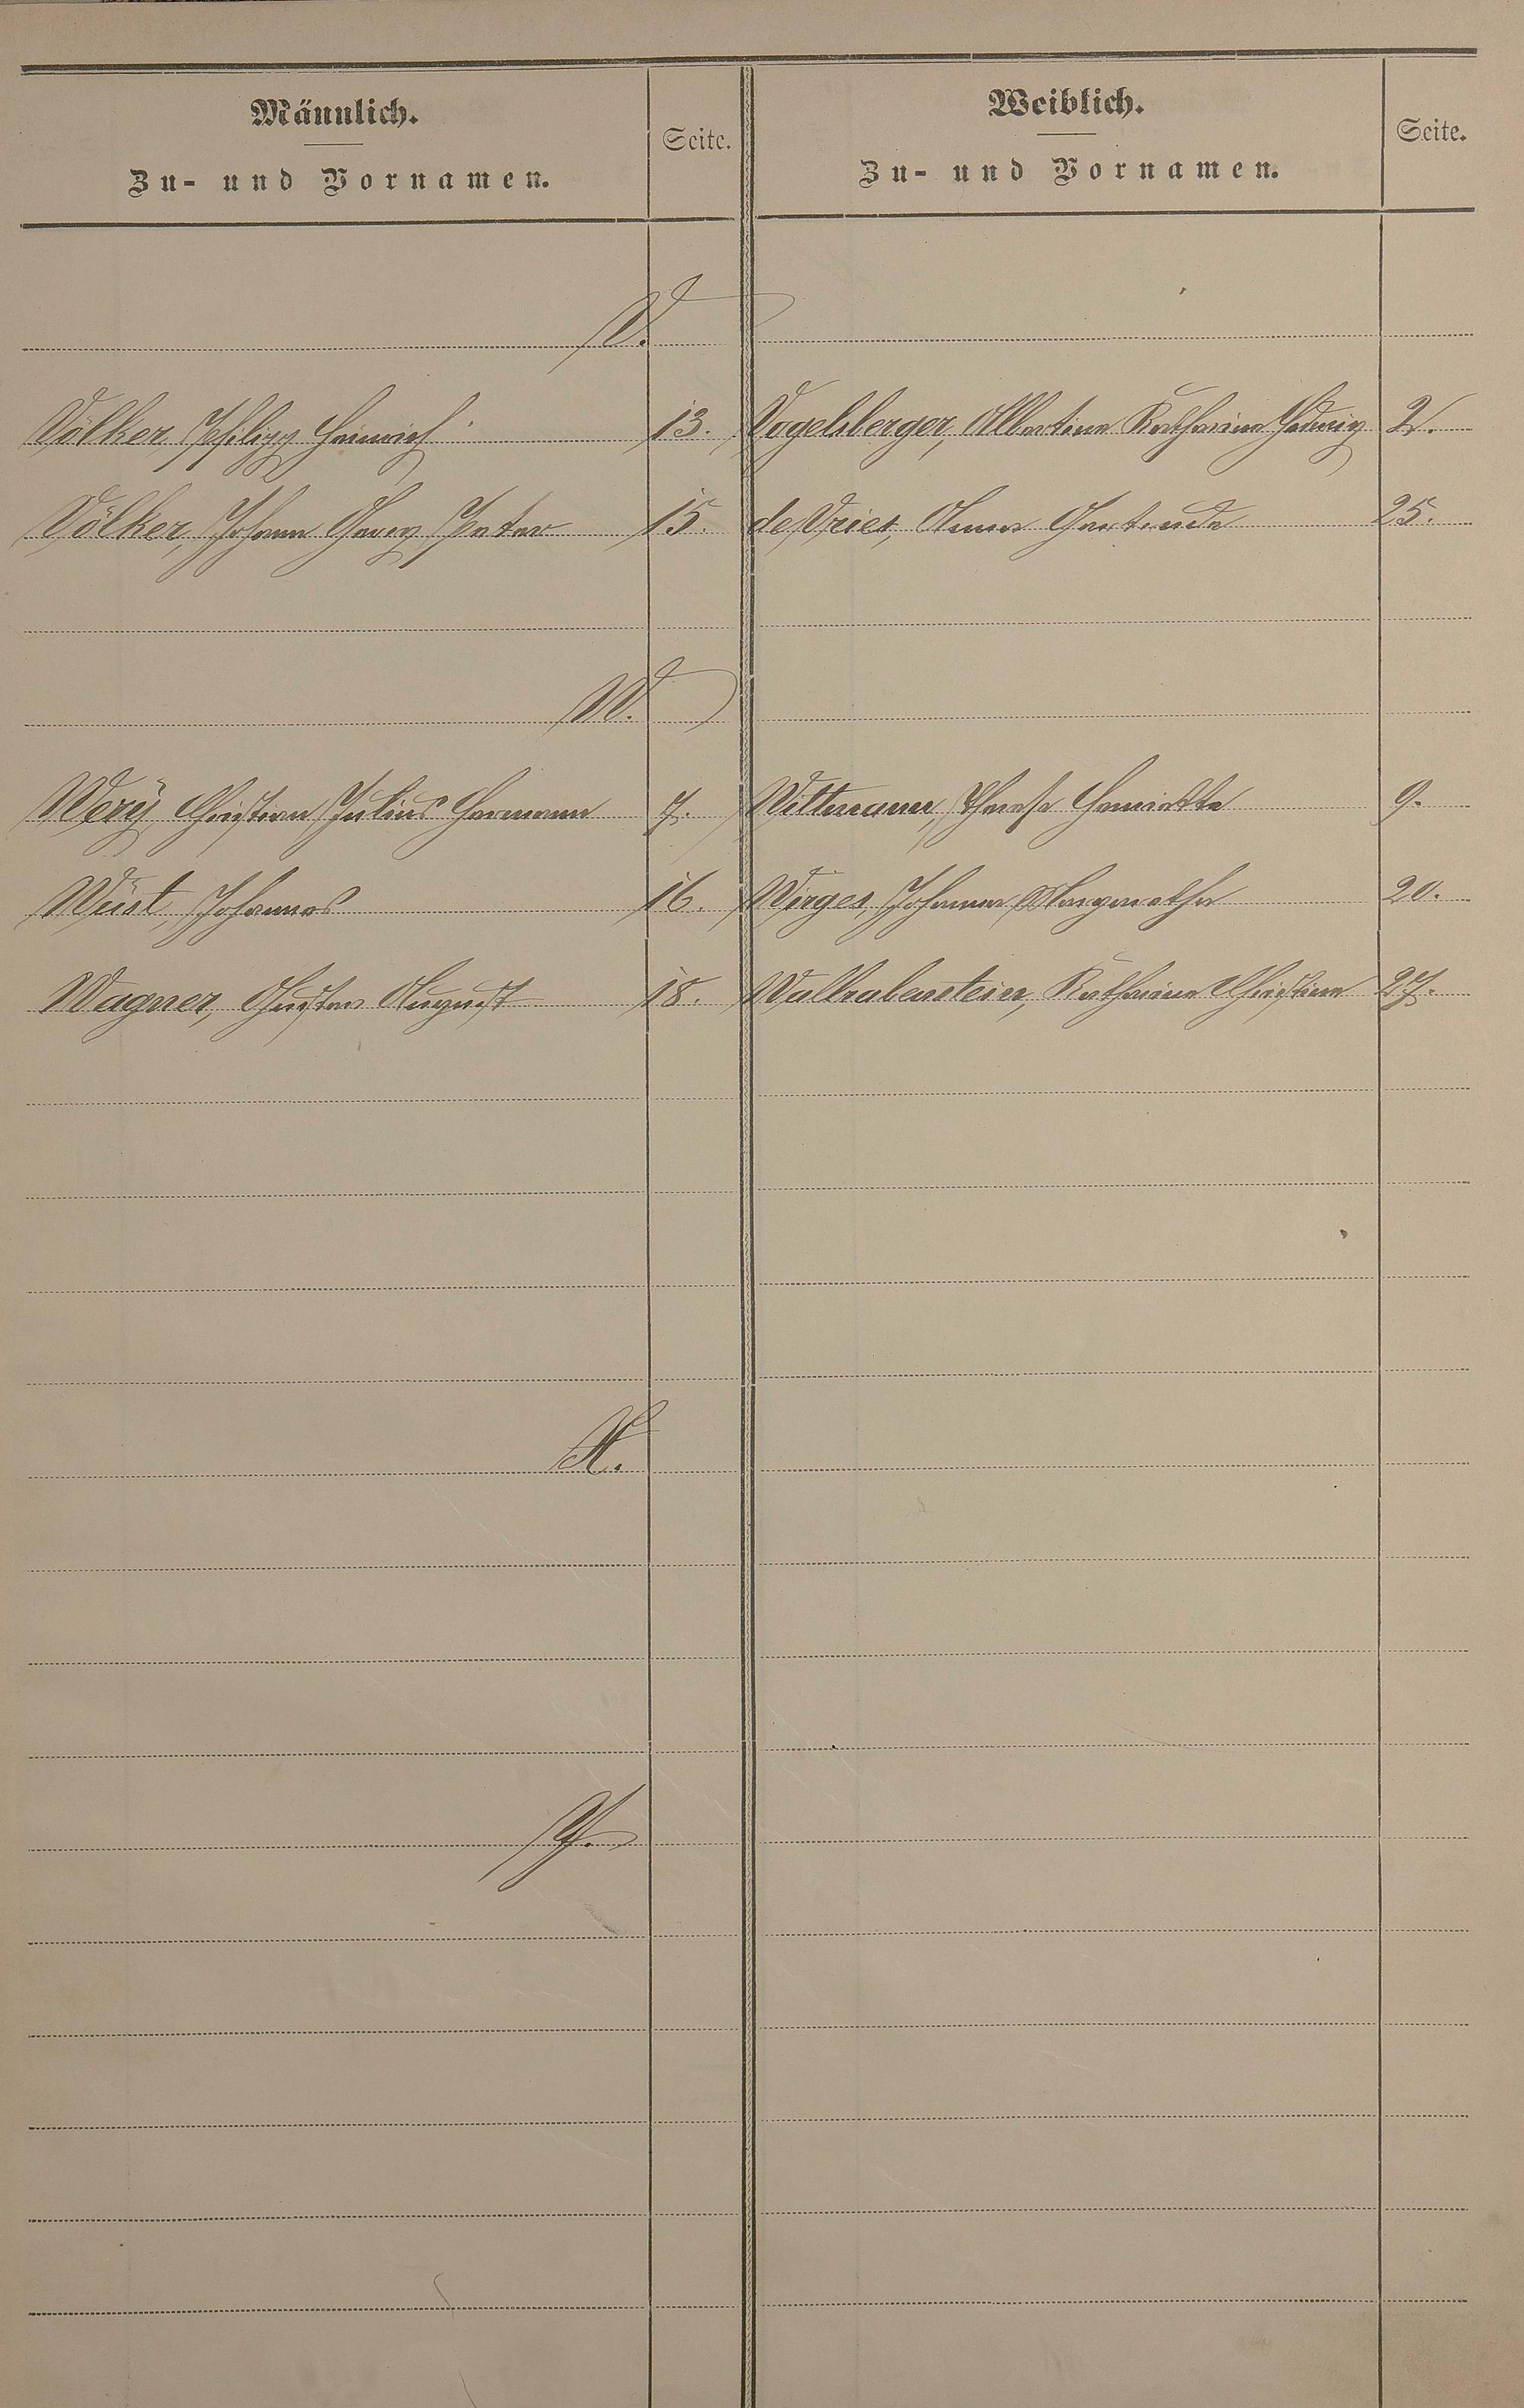 Männlich.
Zu- und Vornamen.
Seite.
Weiblich.
Zu- und Vornamen.
Seite.
V.
Völker, Philipp Heinrich 13. Vogelsberger, Albertine Katharina Hedwig 2.
Völker, Johann Georg Peter 15. de Vries, Anna Gertrude 25.
W.
Werÿ, Christian Julius Hermann 7. Wittmann, Therese Henriette 9.
Wüst, Johannes 16. Wirges, Johanna Margaretha 20.
Wagner, Gustav August 18. Wallrabenstein, Katharina Christina 27.
X.
Y.